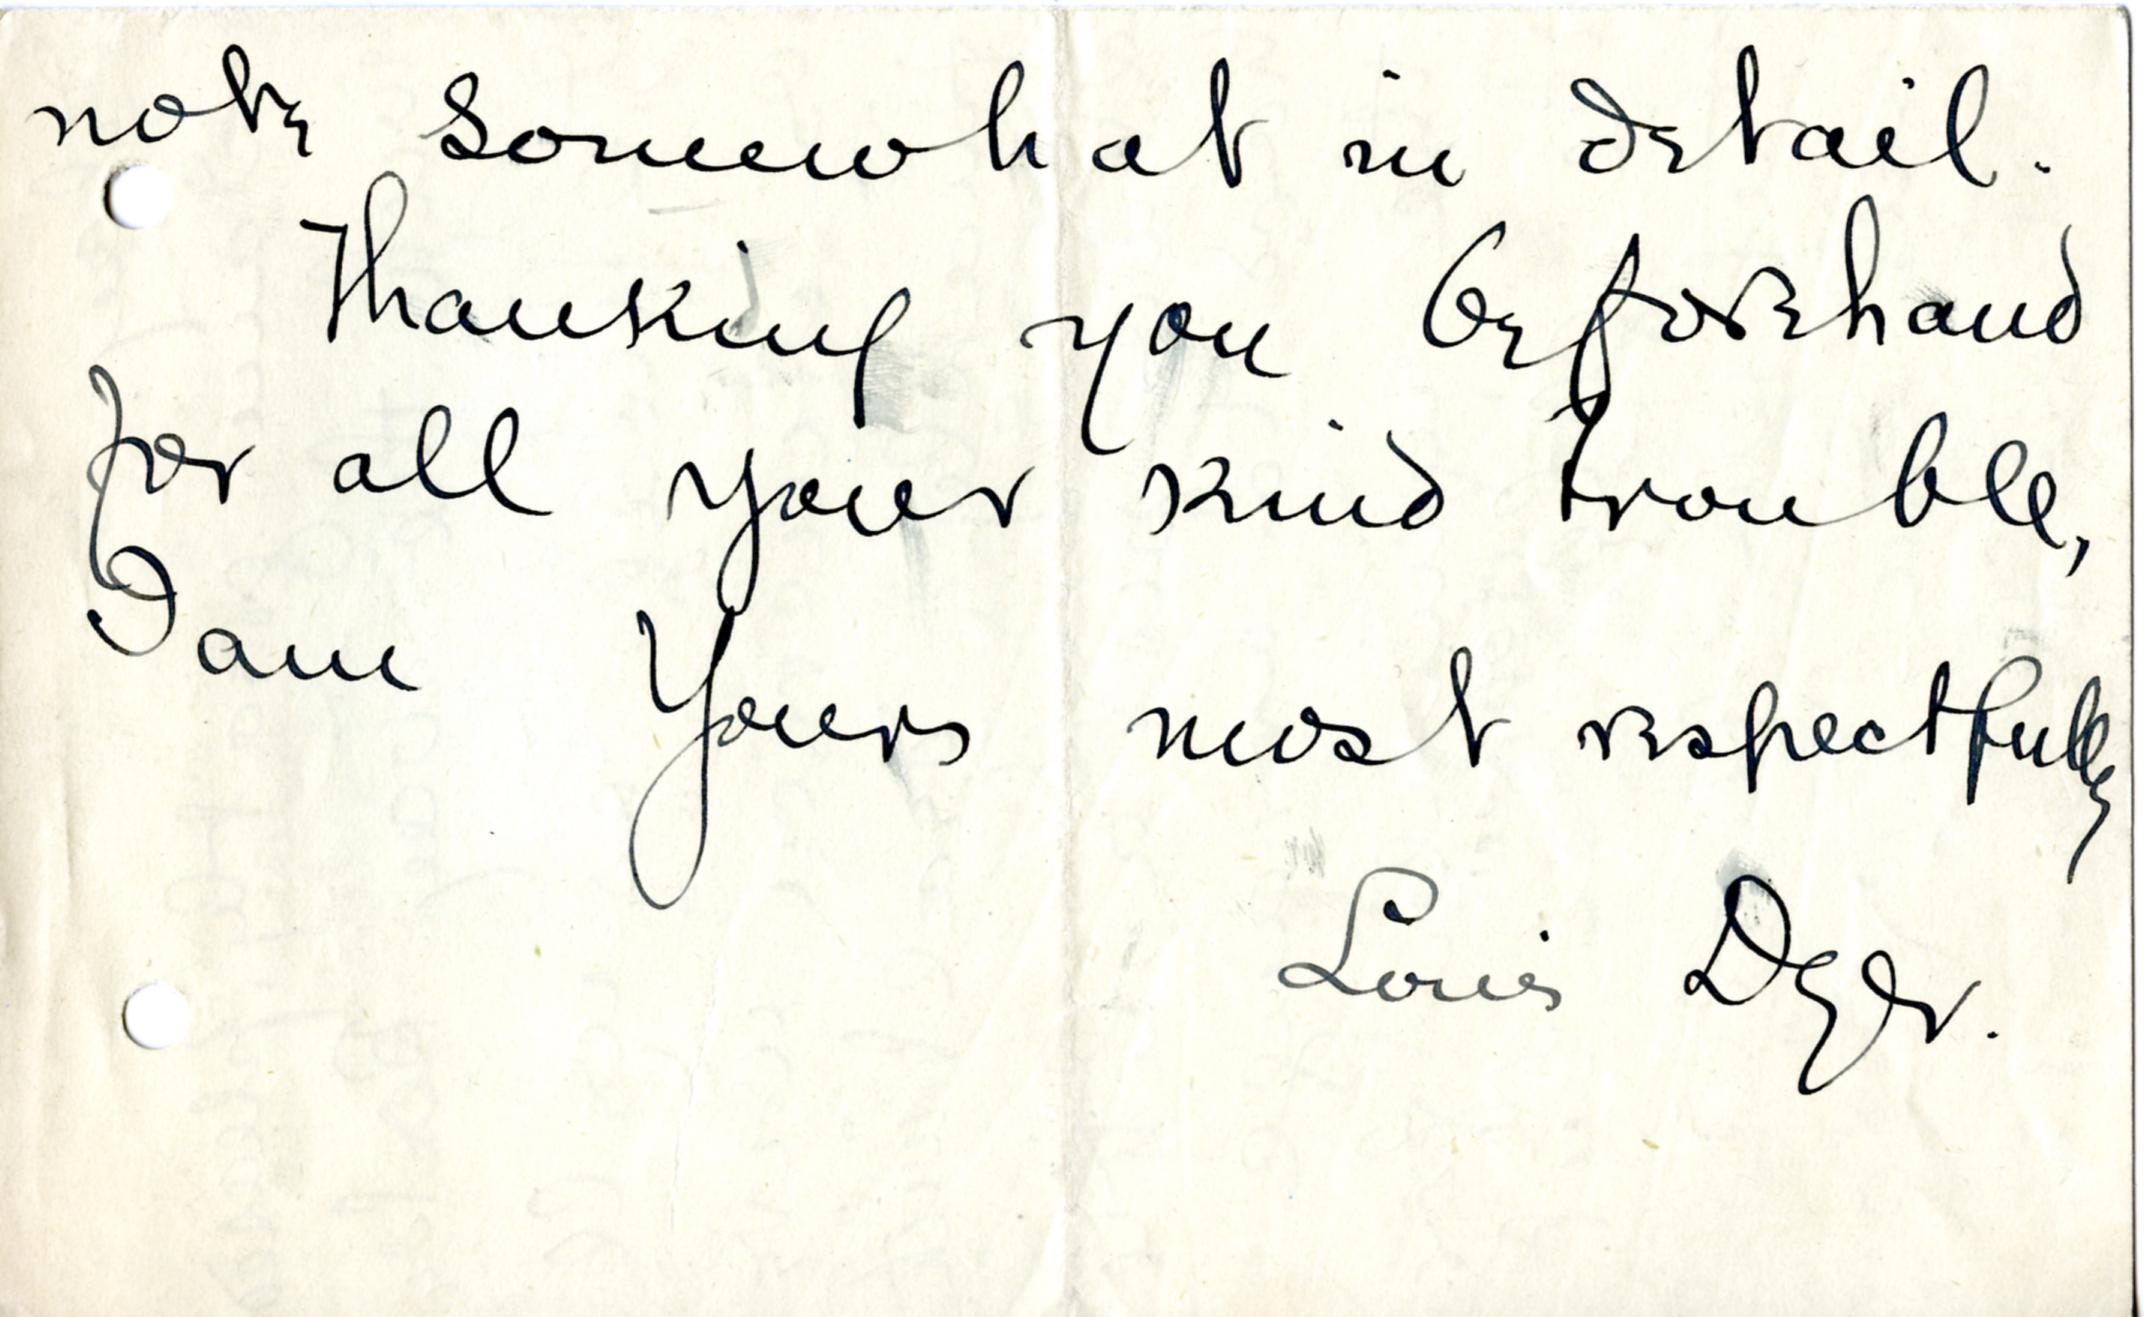 note somewhat in detail.
Thanking you beforehand
for all your kind trouble,
I am Yours most respectfully
Louis Dyer.